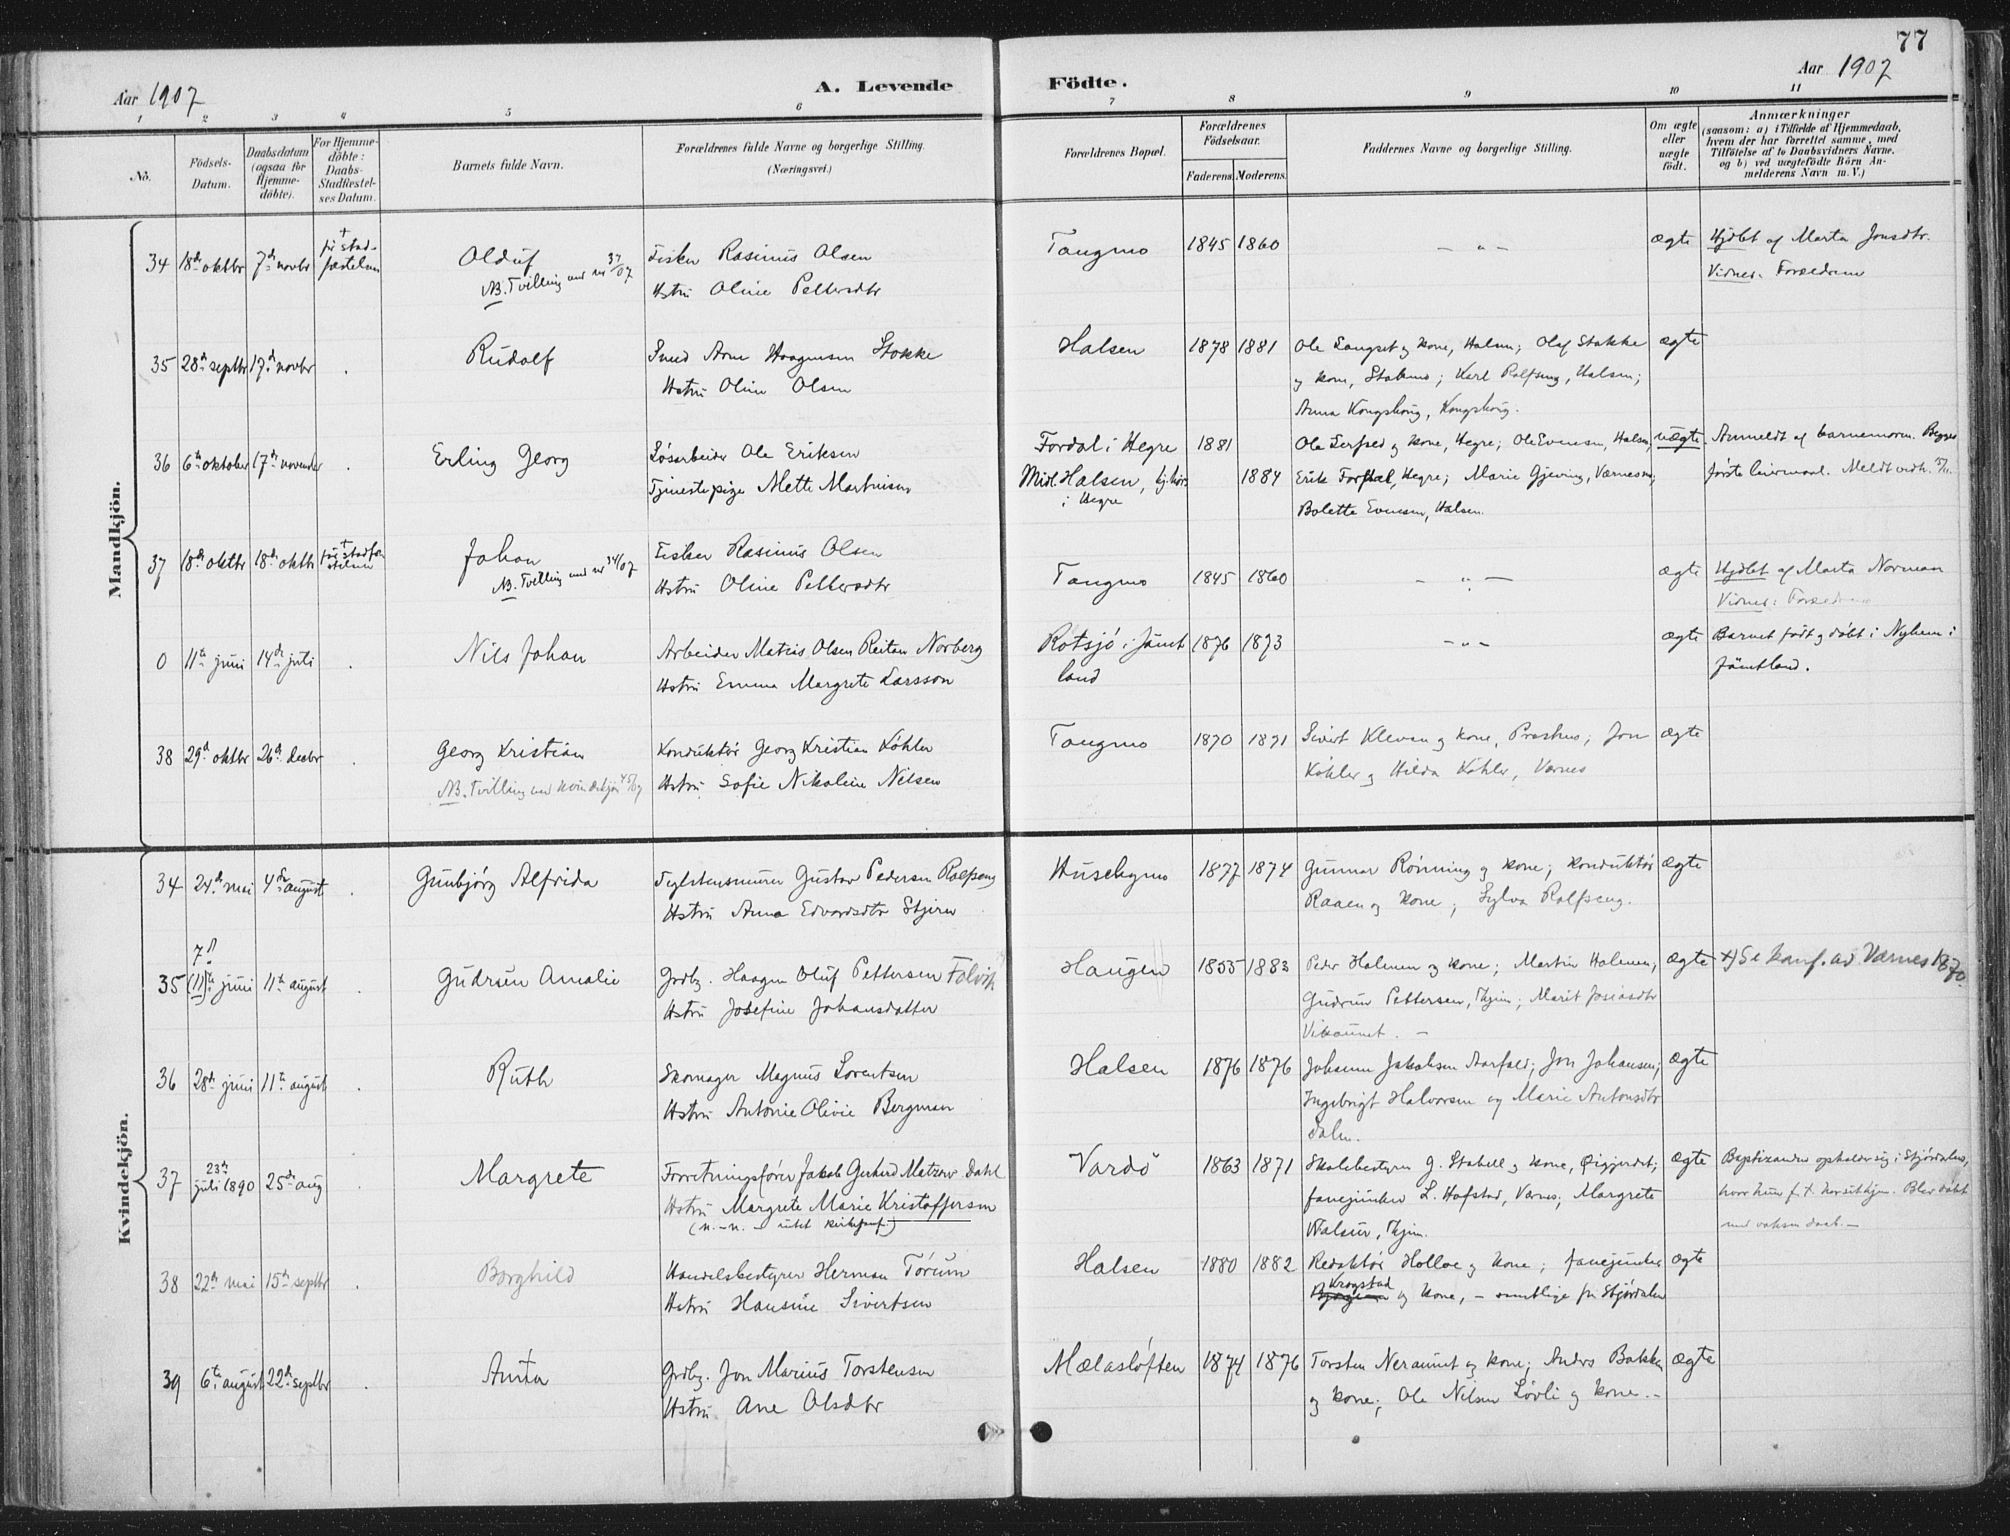 77
Aar 1907
A. Levende
Födte.
Aar 1907
1 2 3 4 5 6 7 8 9 10 11
No.
Födsels-Datum.
Daabsdatum (ogsaa for Hjemmedöbte).
For Hjemmedöbte: Daabs-Stadfæstelses Datum.
Barnets fulde Navn.
Forældrenes fulde Navne og borgerlige Stilling.
(Næringsvei.)
Forældrenes Bopæl.
Forældrenes Födselsaar.
Faderens. Moderens.
Faddernes Navne og borgerlige Stilling.
Om ægte eller uægte födt.
Anmærkninger
(saasom: a) i Tilfælde af Hjemmedaab,
hvem der har forrettet samme, med
Tilföielse af to Daabsvidners Navne.
og b) ved uægtefödte Börn An-
melderens Navn m. V.)
Mandkjön.
34 18de oktbr 7de novbr † før stadfæstelsen Oluf Fisker Rasmus Olsen Tangmo 1845 1860 – " – ægte Hjdbt af Marta Jonsdtr.
NB. Tvilling med nr 37/07 Hstru Oline Pettersdtr Vidner: Forældrene
35 28de septbr 17de novbr Rudolf Smed Arne Haagensen Stokke Halsen 1878 1881 Ole Langset og kone, Halsen; Olaf Stokke ægte
Hstru Oline Olsen og kone, Stokmo; Karl Rolfseng, Halsen;
Anna Kongshaug, Kongshaug.
36 6te oktober 17de november Erling Georg Løsarbeider Ole Eriksen Fordal i Hegre 1881 Ole Serfsed og kone, Hegre; Ole Evensen, Halsen; uægte Anmeldt af barnemoren. Begges
Tjenestepige Mette Martinsen Midl. Halsen, hjhør i Hegre 1884 Erik Fordal, Hegre; Marie Gjeving, Værnesm; første leiermaal. Meldt
Bolette Evensen, Halsen.
37 18de oktbr 18de oktbr † før stadfæstelsen Johan Fisker Rasmus Olsen Tangmo 1845 1860 – " – ægte Hjdbt af Marta Norman
NB. Tvilling med nr 34/07 Hstru Oline Pettersdtr Vidner: Forældrene
0 11te juni 14de juli Nils Johan Arbeider Matias Olsen Reitan Norberg Rotsjö i Jämtland 1876 1873 – " – ægte Barnet født og døbt i Nyhem i
Hstru Emma Margrete Larsson Jämtland.
38 29de oktbr 26de decbr Georg Kristian Konduktør Georg Kristian Køhler Tangmo 1870 1871 Sivert Klevan og kone, Præstmo; Jon ægte
NB. Tvilling med kvindekjøn 45/07 Hstru Sofie Nikoline Nilsen Køhler og Hilda Køhler, Værnes
Kvindekjön.
34 24de mai 4de august Gunbjørg Alfrida Teglstensmurer Gustav Pedersen Rolfseng Husebymo 1877 1874 Gunnar Rønning og kone; konduktør ægte
Hstru Anna Edvardsdtr Stjern Raaen og kone; Sylva Rolfseng.
35 7de (11)te juni 11te august Gudrun Amalie Grdbr. Haagen Oluf Pettersen Folvik Haugen 1855 1883 Peder Holmen og kone; Martin Holmen, ægte †) Se konf. av Værnes 1870.
Hstru Josefine Johansdatter Gudrun Pettersen, Thjem; Marit Josiasdtr
Vikaunet. –
36 28de juni 11te august Ruth Skomager Magnus Lorentsen Halsen 1876 1876 Johanna Jakobsen Aarfald; Jon Johansen; ægte
Hstru Antonie Olivie Bergman Ingebrigt Halvorsen og Marie Antonsdtr
Dalm.
37 23de juli 1890 25de aug Margrete Forretningsfører Jakob Gerhard Metzow Dahl Vardø 1863 1871 Skolebestyrer J. Stabell og kone, Øigjerdet; ægte Baptizanden opholder sig i Stjørdalen,
Hstru Margrete Marie Kristoffersen fanejunker L. Hofstad, Værnes; Margrete hvor hun f. t. har sit hjem. Blev døbt
Walsøe, Thjem. med voksen daab. –
38 22de mai 15de septbr Borghild Handelsbestyrer Herman Tørum Halsen 1880 1882 Redaktør Holloe og kone; fanejunker ægte
Hstru Hansine Sivertsen Krogstad og kone, – samtlige fra Stjørdalen
39 6te august 22de septbr Anna Grdbr. Jon Marius Torstensen Mælasløften 1874 1876 Torsten Neraunet og kone; Anders Bakken ægte
Hstru Ane Olsdtr og kone; Ole Nilsen Løvli og kone. –